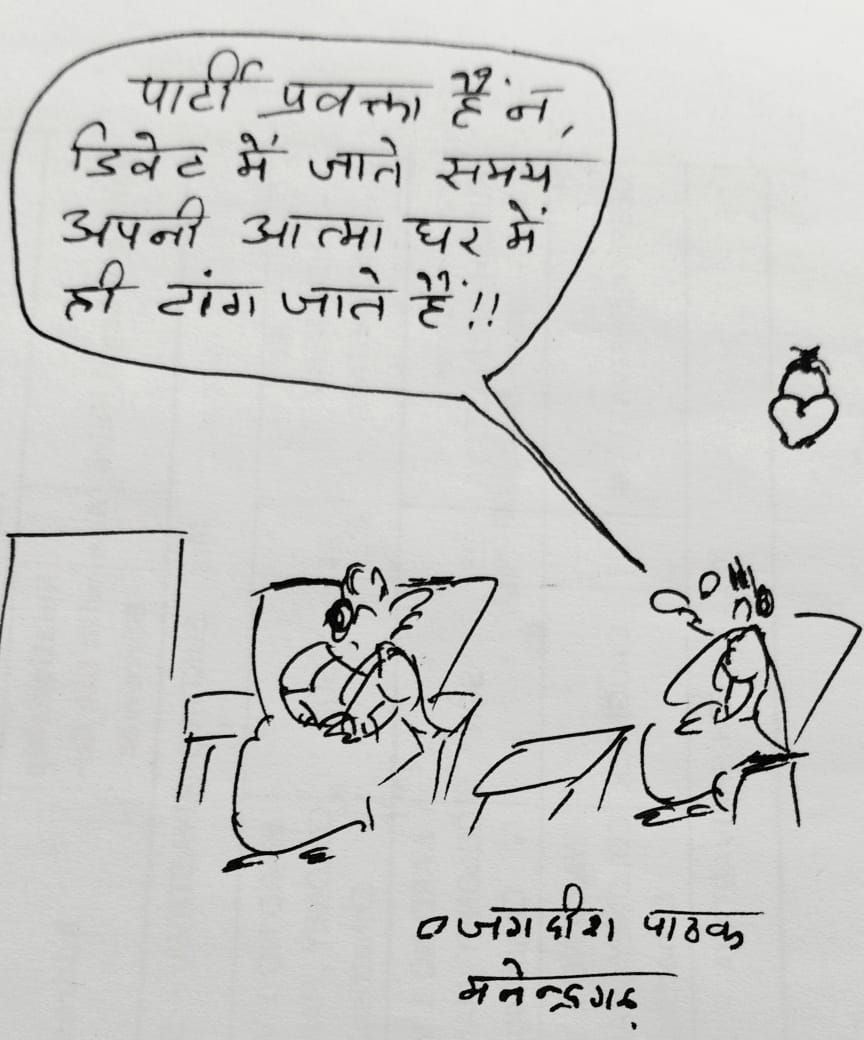 पार्टी प्रवक्ता हैं न,
डिवेट में जाते समय
अपनी आत्मा घर में
ही टांग जाते हैं!!
जगदीश पाठक
मनेन्द्रगढ़